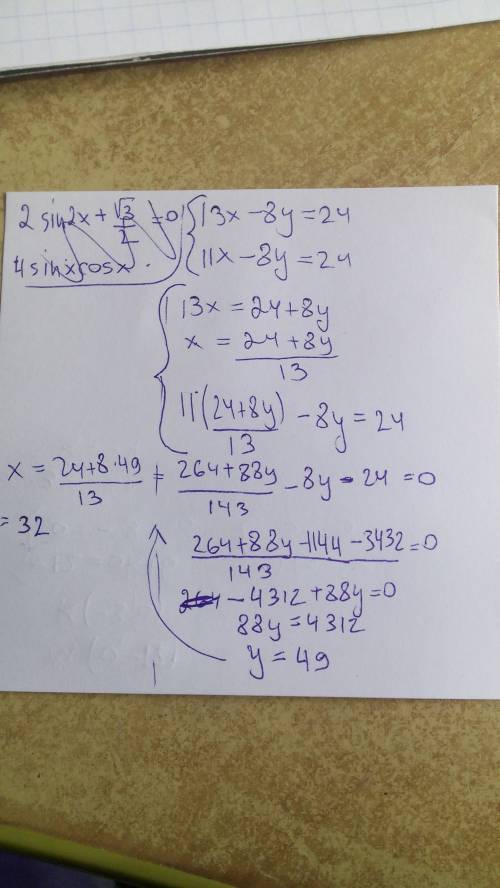 2 sin2x + √3/2 = 0
4 sinxcosx.
{ 13x - 8y = 24
11x - 8y = 24
{ 13x = 24 + 8y
x = (24 + 8y)/13
11·(24+8y)/13 - 8y = 24
(264 + 88y)/143 - 8y - 24 = 0
(264 + 88y - 1144 - 3432)/143 = 0
- 4312 + 88y = 0
88y = 4312
y = 49
x = (24 + 8·49)/13 =
= 32